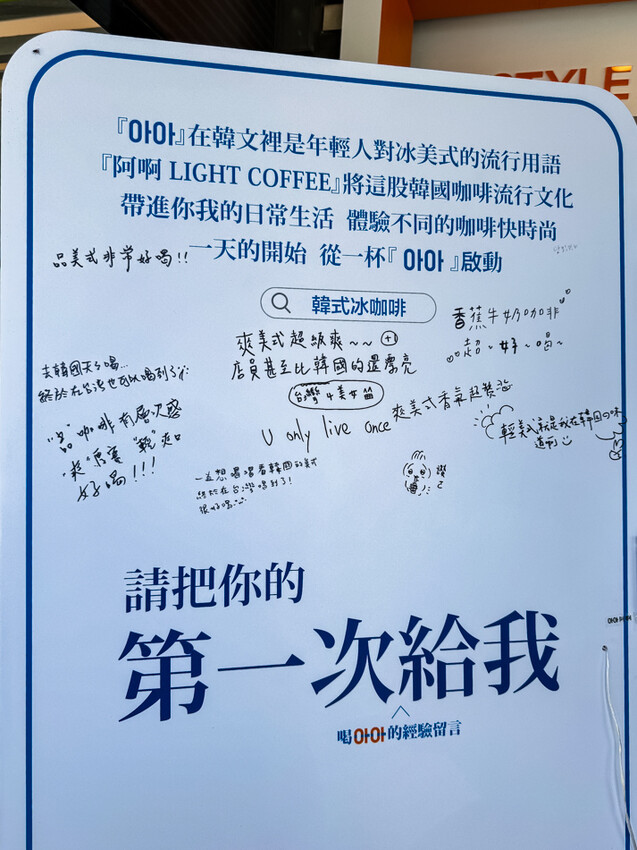 STYLE
『아아』在韓文裡是年輕人對冰美式的流行用語
『阿啊 LIGHT COFFEE』將這股韓國咖啡流行文化
帶進你我的日常生活 體驗不同的咖啡快時尚
一天的開始 從一杯『아아』啟動
品美式非常好喝!!
韓式冰咖啡
香蕉牛奶咖啡
超~好~喝~
爽美式超級爽~~
店員甚至比韓國的還漂亮
去韓國天天喝...
終於在台灣也可以喝到了
台灣4美女篇
爽美式香氣超讚
"品"咖啡有層次感
"爽"厚實"輕"爽口
好喝!!!
U only live once
輕美式就是我在韓國喝的味道啊
一直想喝喝看韓國的美式
終於在台灣喝到了!
很好喝
讚
請把你的
第一次給我
喝아아的經驗留言